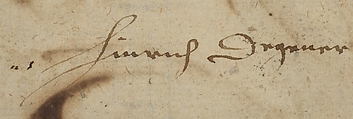 Hinrich Degener